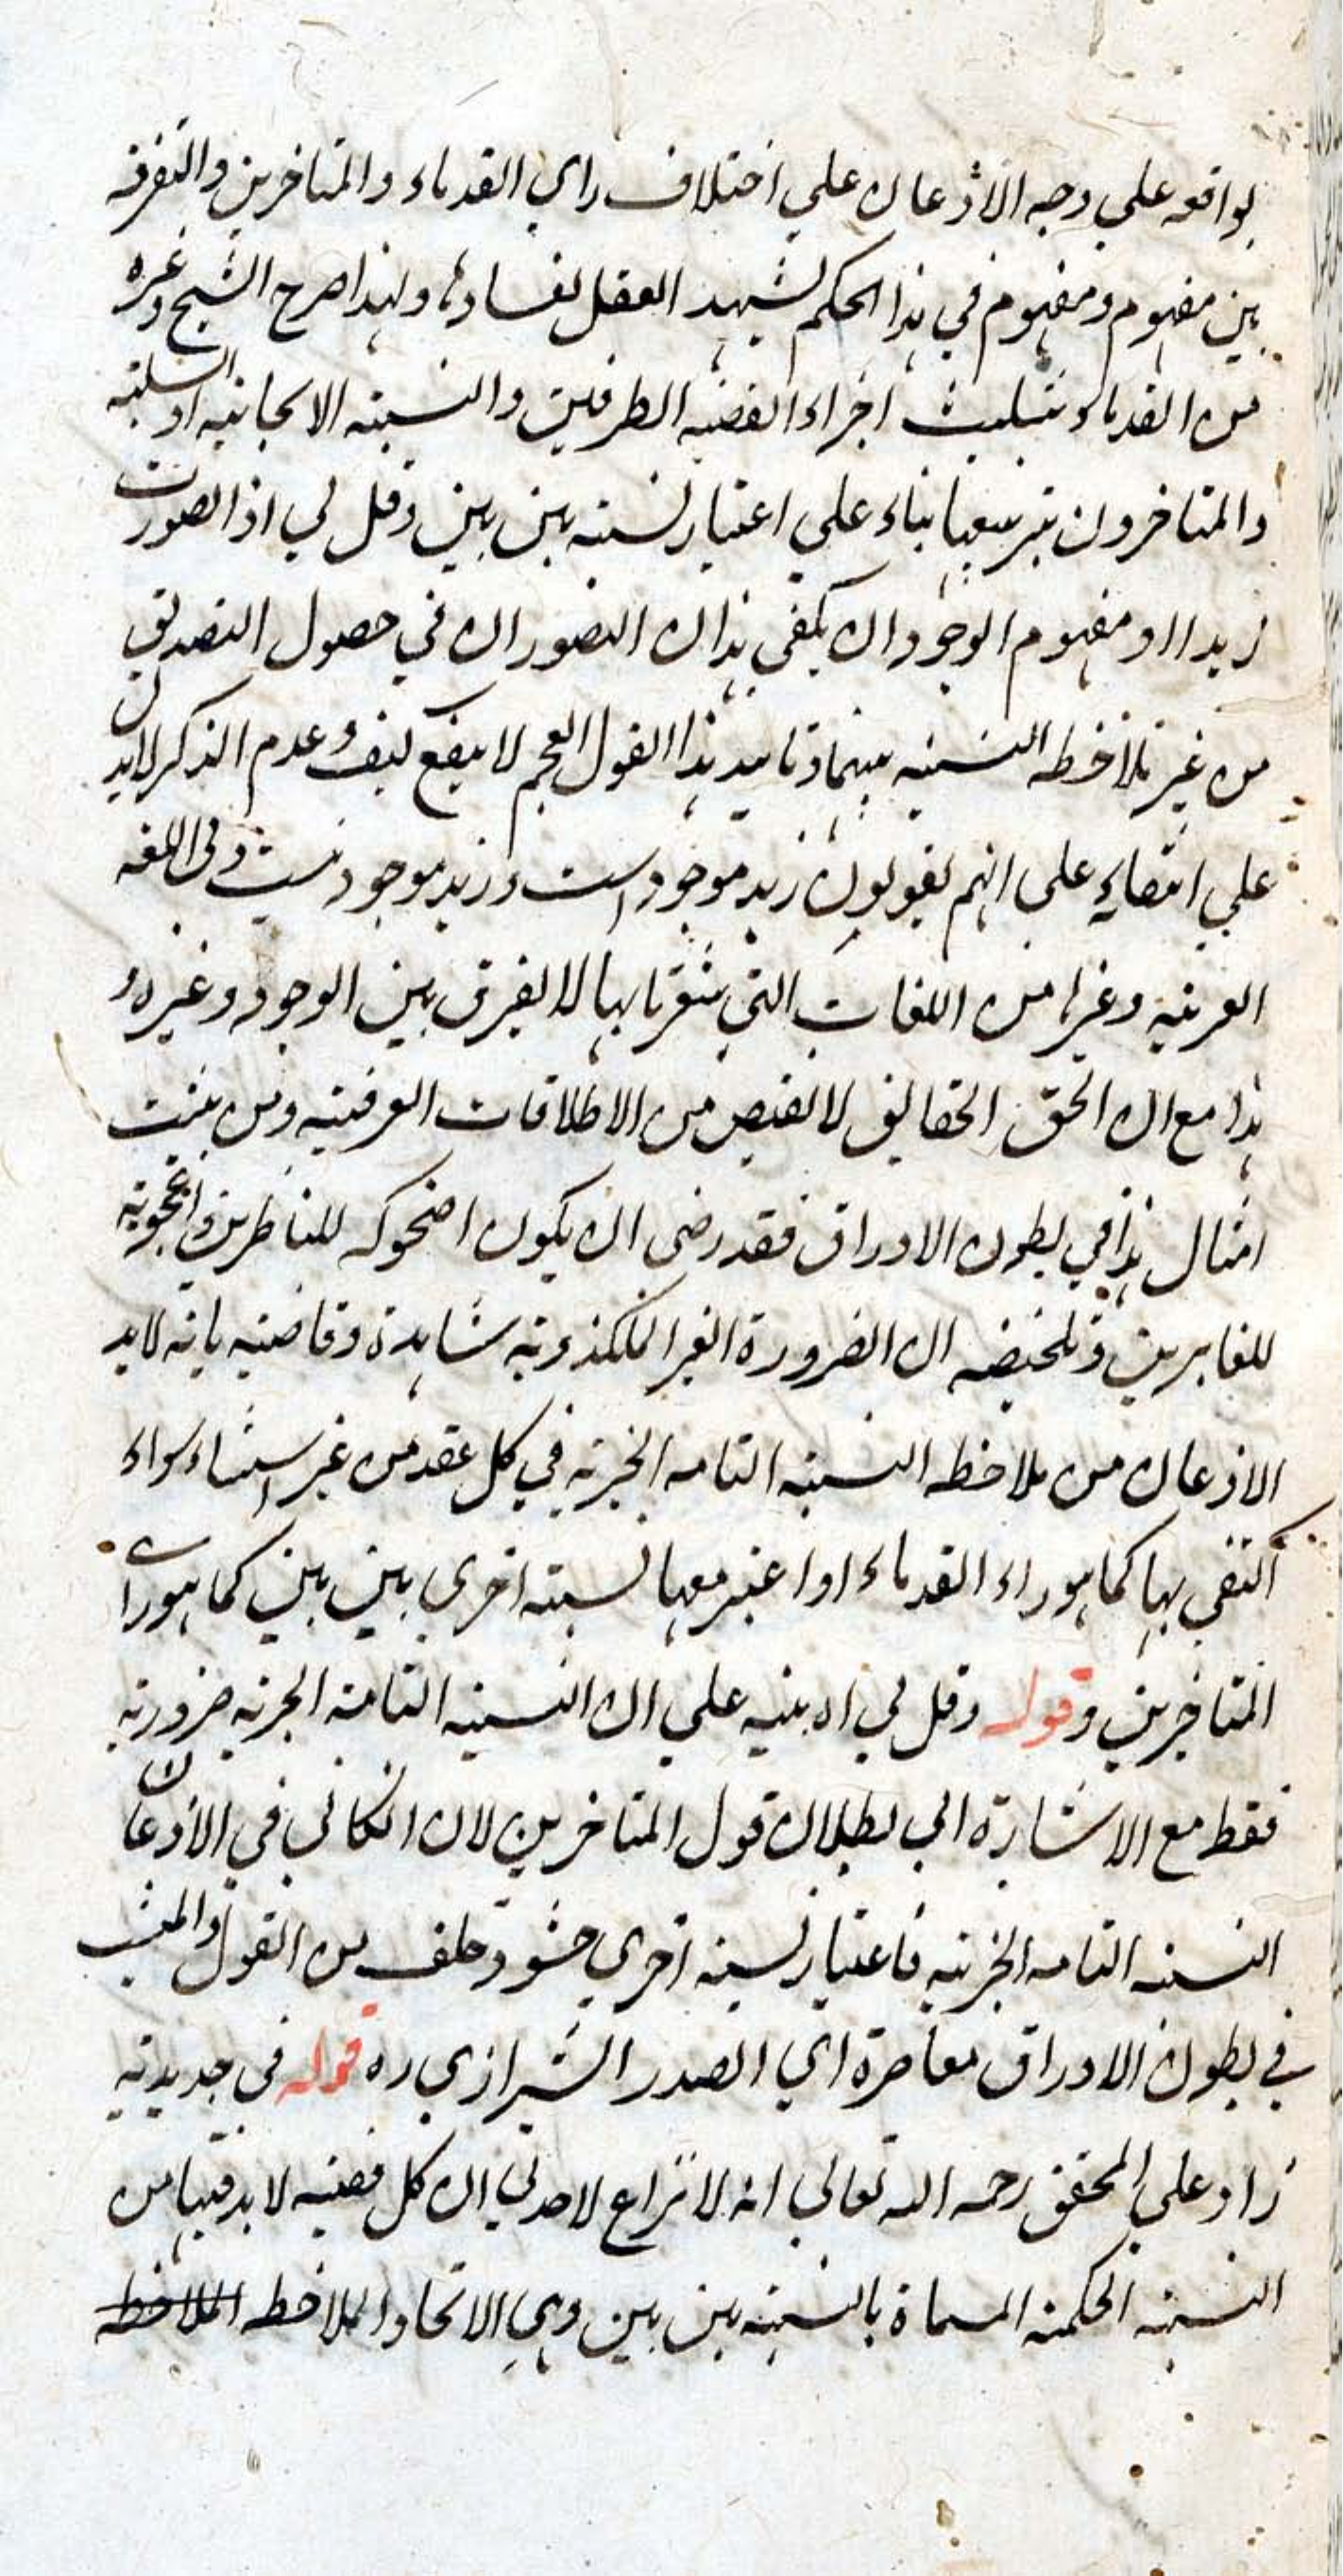 بواقعه علي وجه الاذعان علي اختلاف راي القدماء والمتاخرين والتفرقه
بين مفهوم ومفهوم في هذا الحكم لشهد العقل لفسادها ولهذا صرح الشيخ وغيره
من القدماء بتثليث اجزاء القضيه الطرفين والنسبته الايجابيه او السلبيه
والمتاخرون بتربيعها بناء علي اعتبار نسبته بين بين وقل لي اذا تصورت
زيدا او مفهوم الوجود ان يكفي هذان التصوران في حصول التصديق
من غير ملاحظه النسبته بينهما وتاييد هذا القول العجم لا ينفع لنفي وعدم الذكر لا يدل
علي انتفايه علي انهم يقولون زيد موجود است وزيد موجود نيست وفي اللغه
العربيه وغيرها من اللغات التي بها لا يفرق بين الوجود وغيره و
هذا مع ان الحق الحقايق لا تقتنص من الاطلاقات العرفيته ومن يثبت
امثال هذا في بطون الاوراق فقد رضي ان يكون اضحوكه للناظرين واعجوبته
للغابرين وتلخيصه ان الضرورة الغير المكذوبه شاهدة وقاضيه بانه لا بد
الاذعان من ملاحظه النسبته التامه الخبريه في كل عقد من غير استثناء سواء
اكتفي بها كما هو راء القدماء او اعتبر معها نسبته اخري بين بين كما هو راي
المتاخرين وقوله وقل لي اه ينبه علي ان النسبته التامته الخبريه ضروريه
فقط مع الاشارة الي بطلان قول المتاخرين لان الكافي في الاذعان
النسبته التامه الخبريه فاعتبار نسبته اخري حشو وخلف من القول والمثبت
في بطون الاوراق معاصرة اي الصدر الشيرازي ره قوله في جديدته
زاد علي المحقق رحمه الله تعالي انه لا نزاع لاحد في ان كل قضيه لا بد فيها من
النسبته الحكميه المسماة بالنسبته بين بين وهي الاتحاد الملاحظه الملاحظه